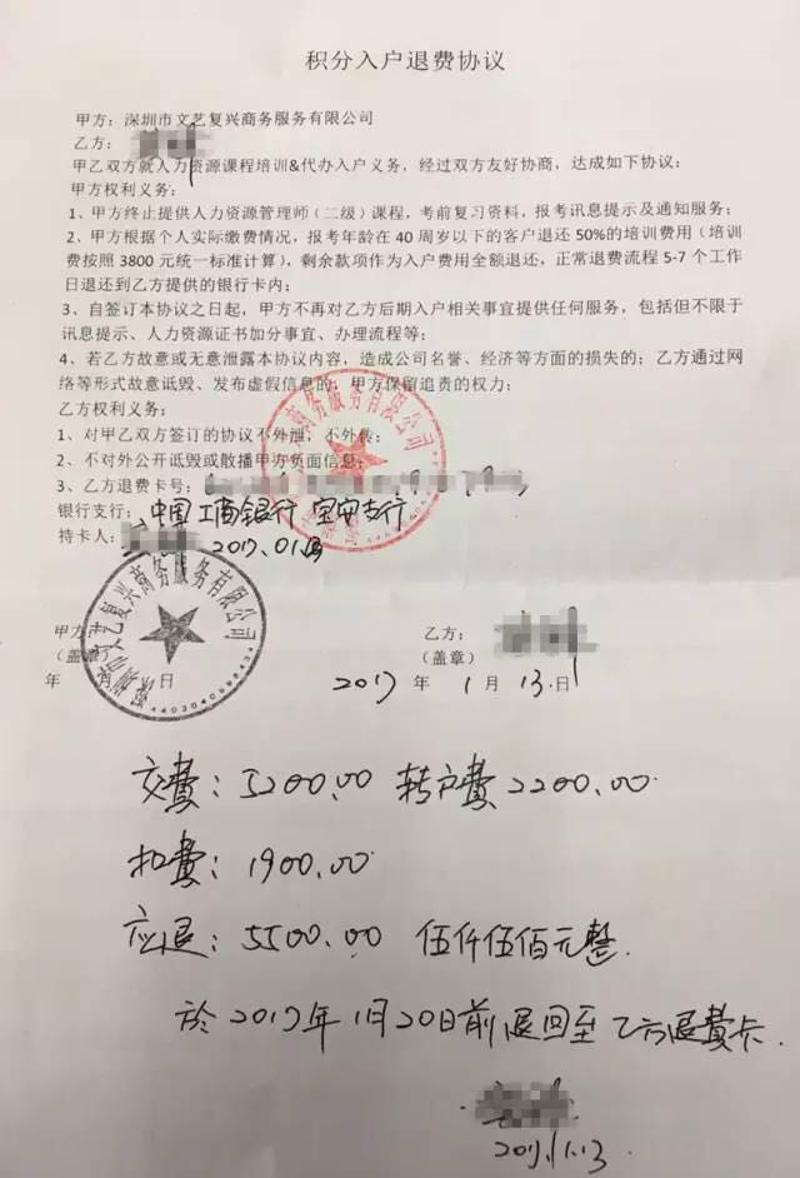 积分入户退费协议
甲方：深圳市文艺复兴商务服务有限公司
乙方：
甲乙双方就人力资源课程培训&代办入户义务，经过双方友好协商，达成如下协议：
甲方权利义务：
1、甲方终止提供人力资源管理师（二级）课程，考前复习资料，报考讯息提示及通知服务；
2、甲方根据个人实际缴费情况，报考年龄在 40 周岁以下的客户退还 50%的培训费用（培训
费按照 3800 元统一标准计算），剩余款项作为入户费用全额退还，正常退费流程 5-7 个工作
日退还到乙方提供的银行卡内；
3、自签订本协议之日起，甲方不再对乙方后期入户相关事宜提供任何服务，包括但不限于
讯息提示、人力资源证书加分事宜、办理流程等；
4、若乙方故意或无意泄露本协议内容，造成公司名誉、经济等方面的损失的；乙方通过网
络等形式故意诋毁、发布虚假信息的，甲方保留追责的权力；
乙方权利义务：
1、对甲乙双方签订的协议不外泄，不外传；
2、不对外公开诋毁或散播甲方负面信息；
3、乙方退费卡号：
银行支行：中国工商银行 宝安支行
持卡人： 2017.01.13
商务服务有限公司
深圳市文艺复兴商务服务有限公司
甲方 乙方：
（盖章） （盖章）
年 月 日 2017 年 1 月 13 日
交费：5200.00 转户费 2200.00
扣费：1900.00
应退：5500.00 伍仟伍佰元整.
於 2017年1月20日前退回至乙方退费卡.
2017.1.13